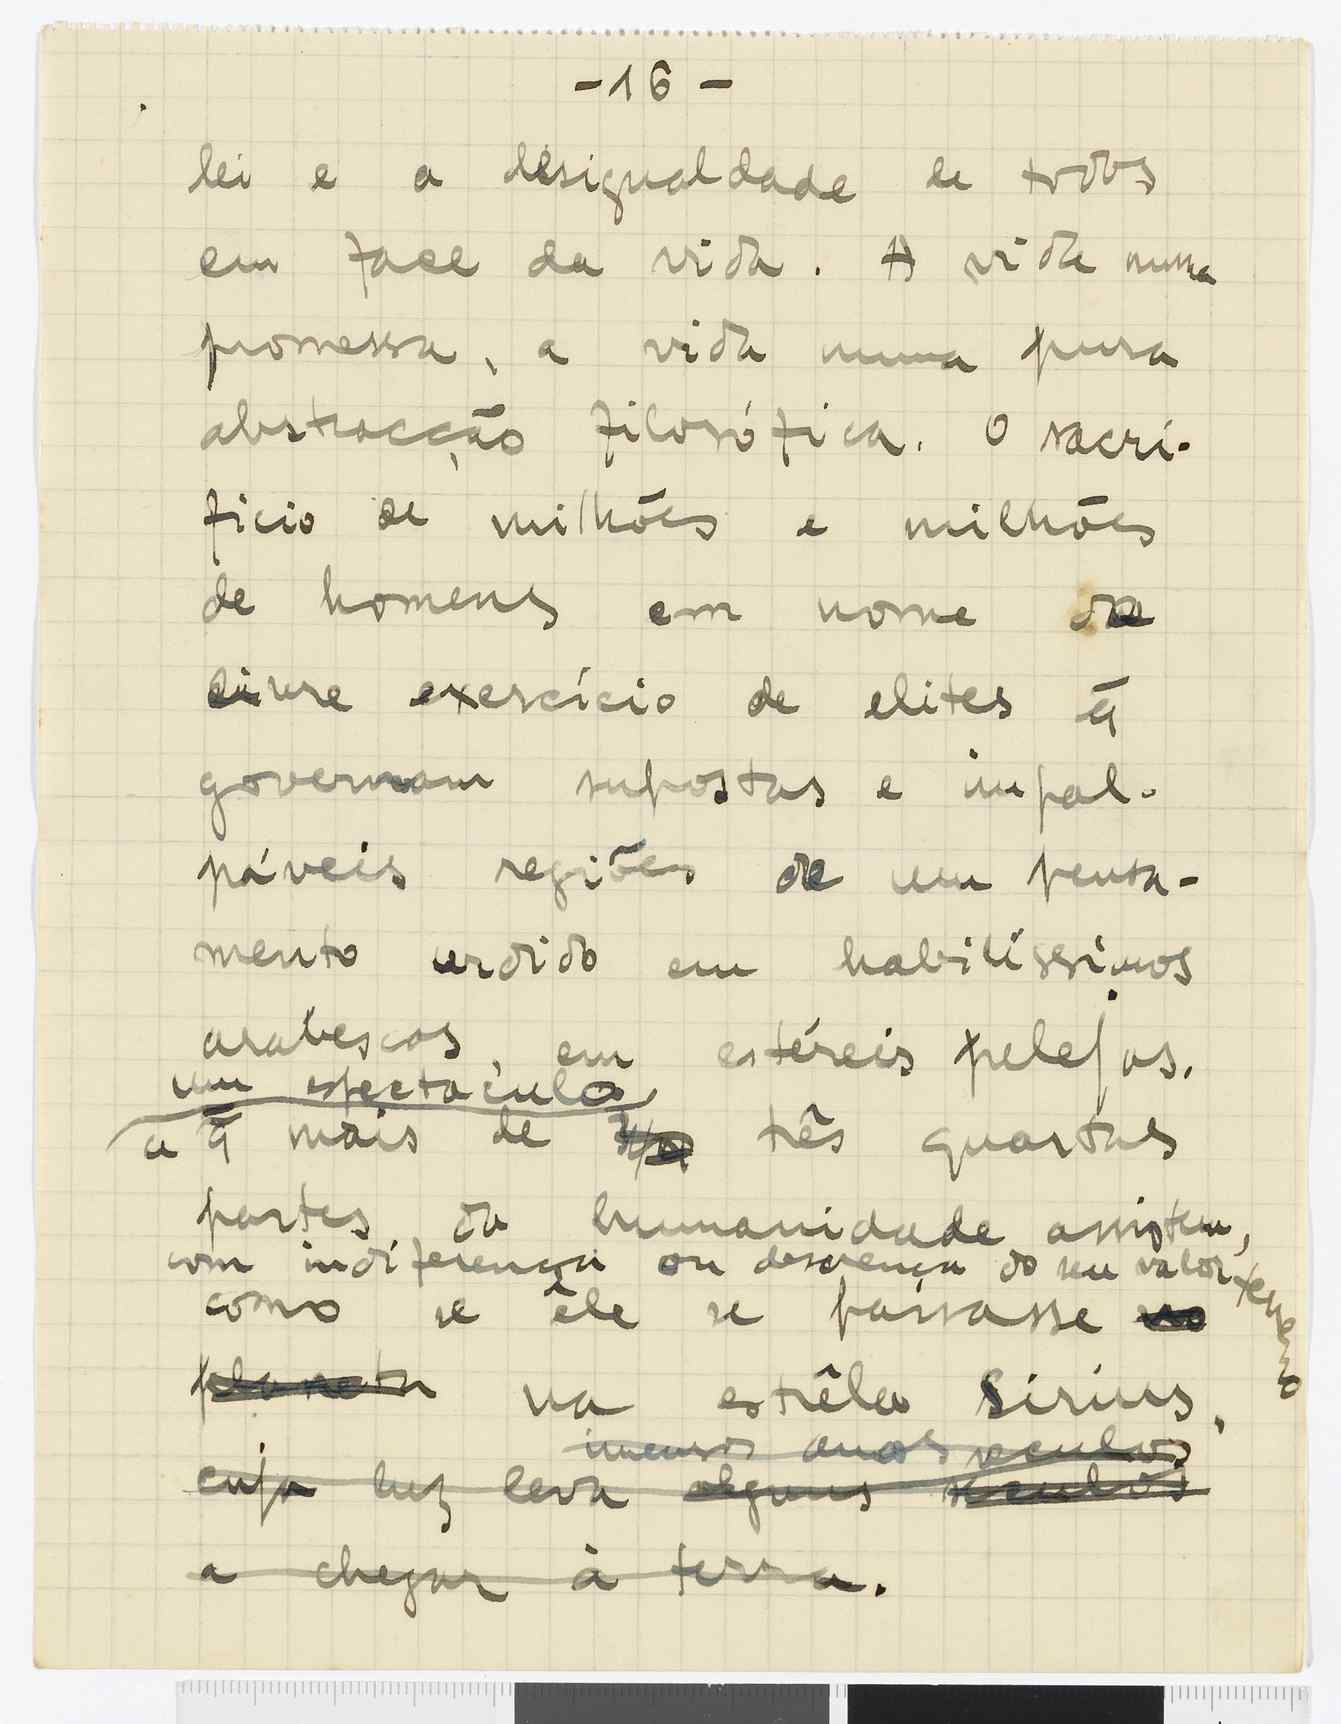 - 16 -
lei e a desigualdade de todos
em face da vida. A vida numa
promessa, a vida numa pura
abstracção filosófica. O sacri-
ficio de milhões e milhões
de homens em nome do
livre exercício de elites q̄
governam supostas e impal-
páveis regiões de um pensa-
mento urdido em habilíssimos
arabescos, em estéreis pelejas,
um espectáculo
a q̄ mais de três quartas
partes da humanidade assistem,
com indiferença ou descrença do seu valor terreno
como se êle se passasse no
planeta na estrêla Sirius,
imensos anos seculos
cuja luz leva alguns seculos
a chegar à terra.